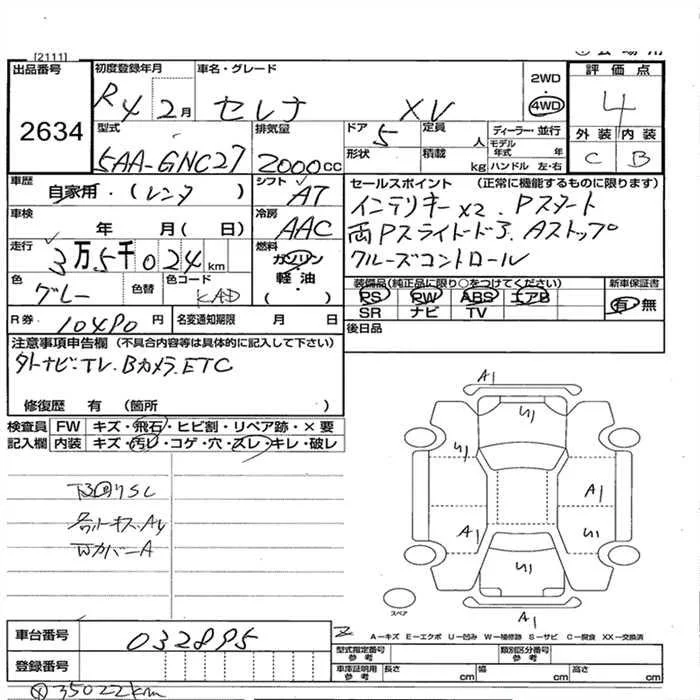 [2111]
出品番号
2634
初度登録年月
R4 2月
車名・グレード
セレナ XV
2WD
4WD
評価点
4
外装 内装
C B
型式
5AA-GNC27
排気量
2000cc
ドア
5
形状
定員
人
積載
kg
ディーラー・並行
モデル年式 年
ハンドル 左・右
車歴
自家用・(レンタ )
シフト
AT
車検
年 月(日)
冷房
AAC
走行
3万5千024km
燃料
ガソリン
軽油
( )
色
グレー
色替
色コード
KAD
R券
10490円
名変通知期限 月 日
セールスポイント (正常に機能するものに限ります)
インテリキーx2. Pスタート
両Pスライドドア. Aストップ
クルーズコントロール
装備品(純正品に限り○をつけてください)
PS PW ABS エアB
SR ナビ TV
新車保証書
有・無
後日品
注意事項申告欄 (不具合内容等は具体的に記入して下さい)
外ナビ・TV. Bカメラ. ETC
修復歴 有 (箇所 )
検査員
記入欄
FW キズ・飛石・ヒビ割・リペア跡・×要
内装 キズ・汚レ・コゲ・穴・スレ・キレ・破レ
WカバーA
A1
U1
U1
A1
A1
U1
U1
A1
スペア
A-キズ E-エクボ U-凹み W-補修跡 S-サビ C-腐食 XX-交換済
車台番号
032895
登録番号
型式指定番号
参考
類別区分番号
参考
車庫証明用
参考
長さ cm
幅 cm
高さ cm
35022km